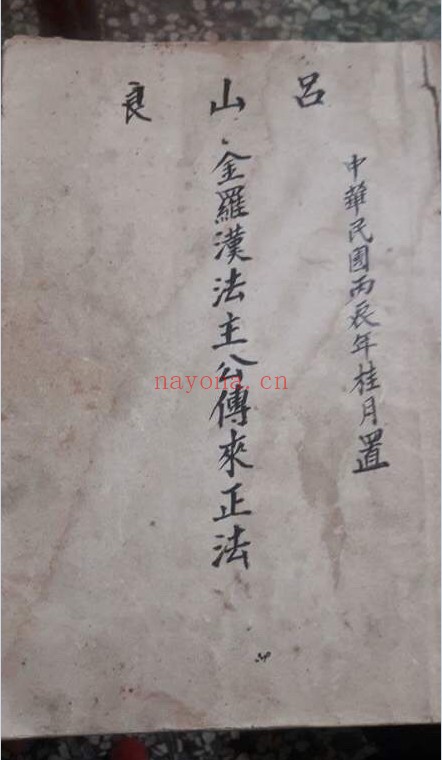 呂山良
中華民國丙辰年桂月置
金羅漢法主公傳來正法
nayona.cn